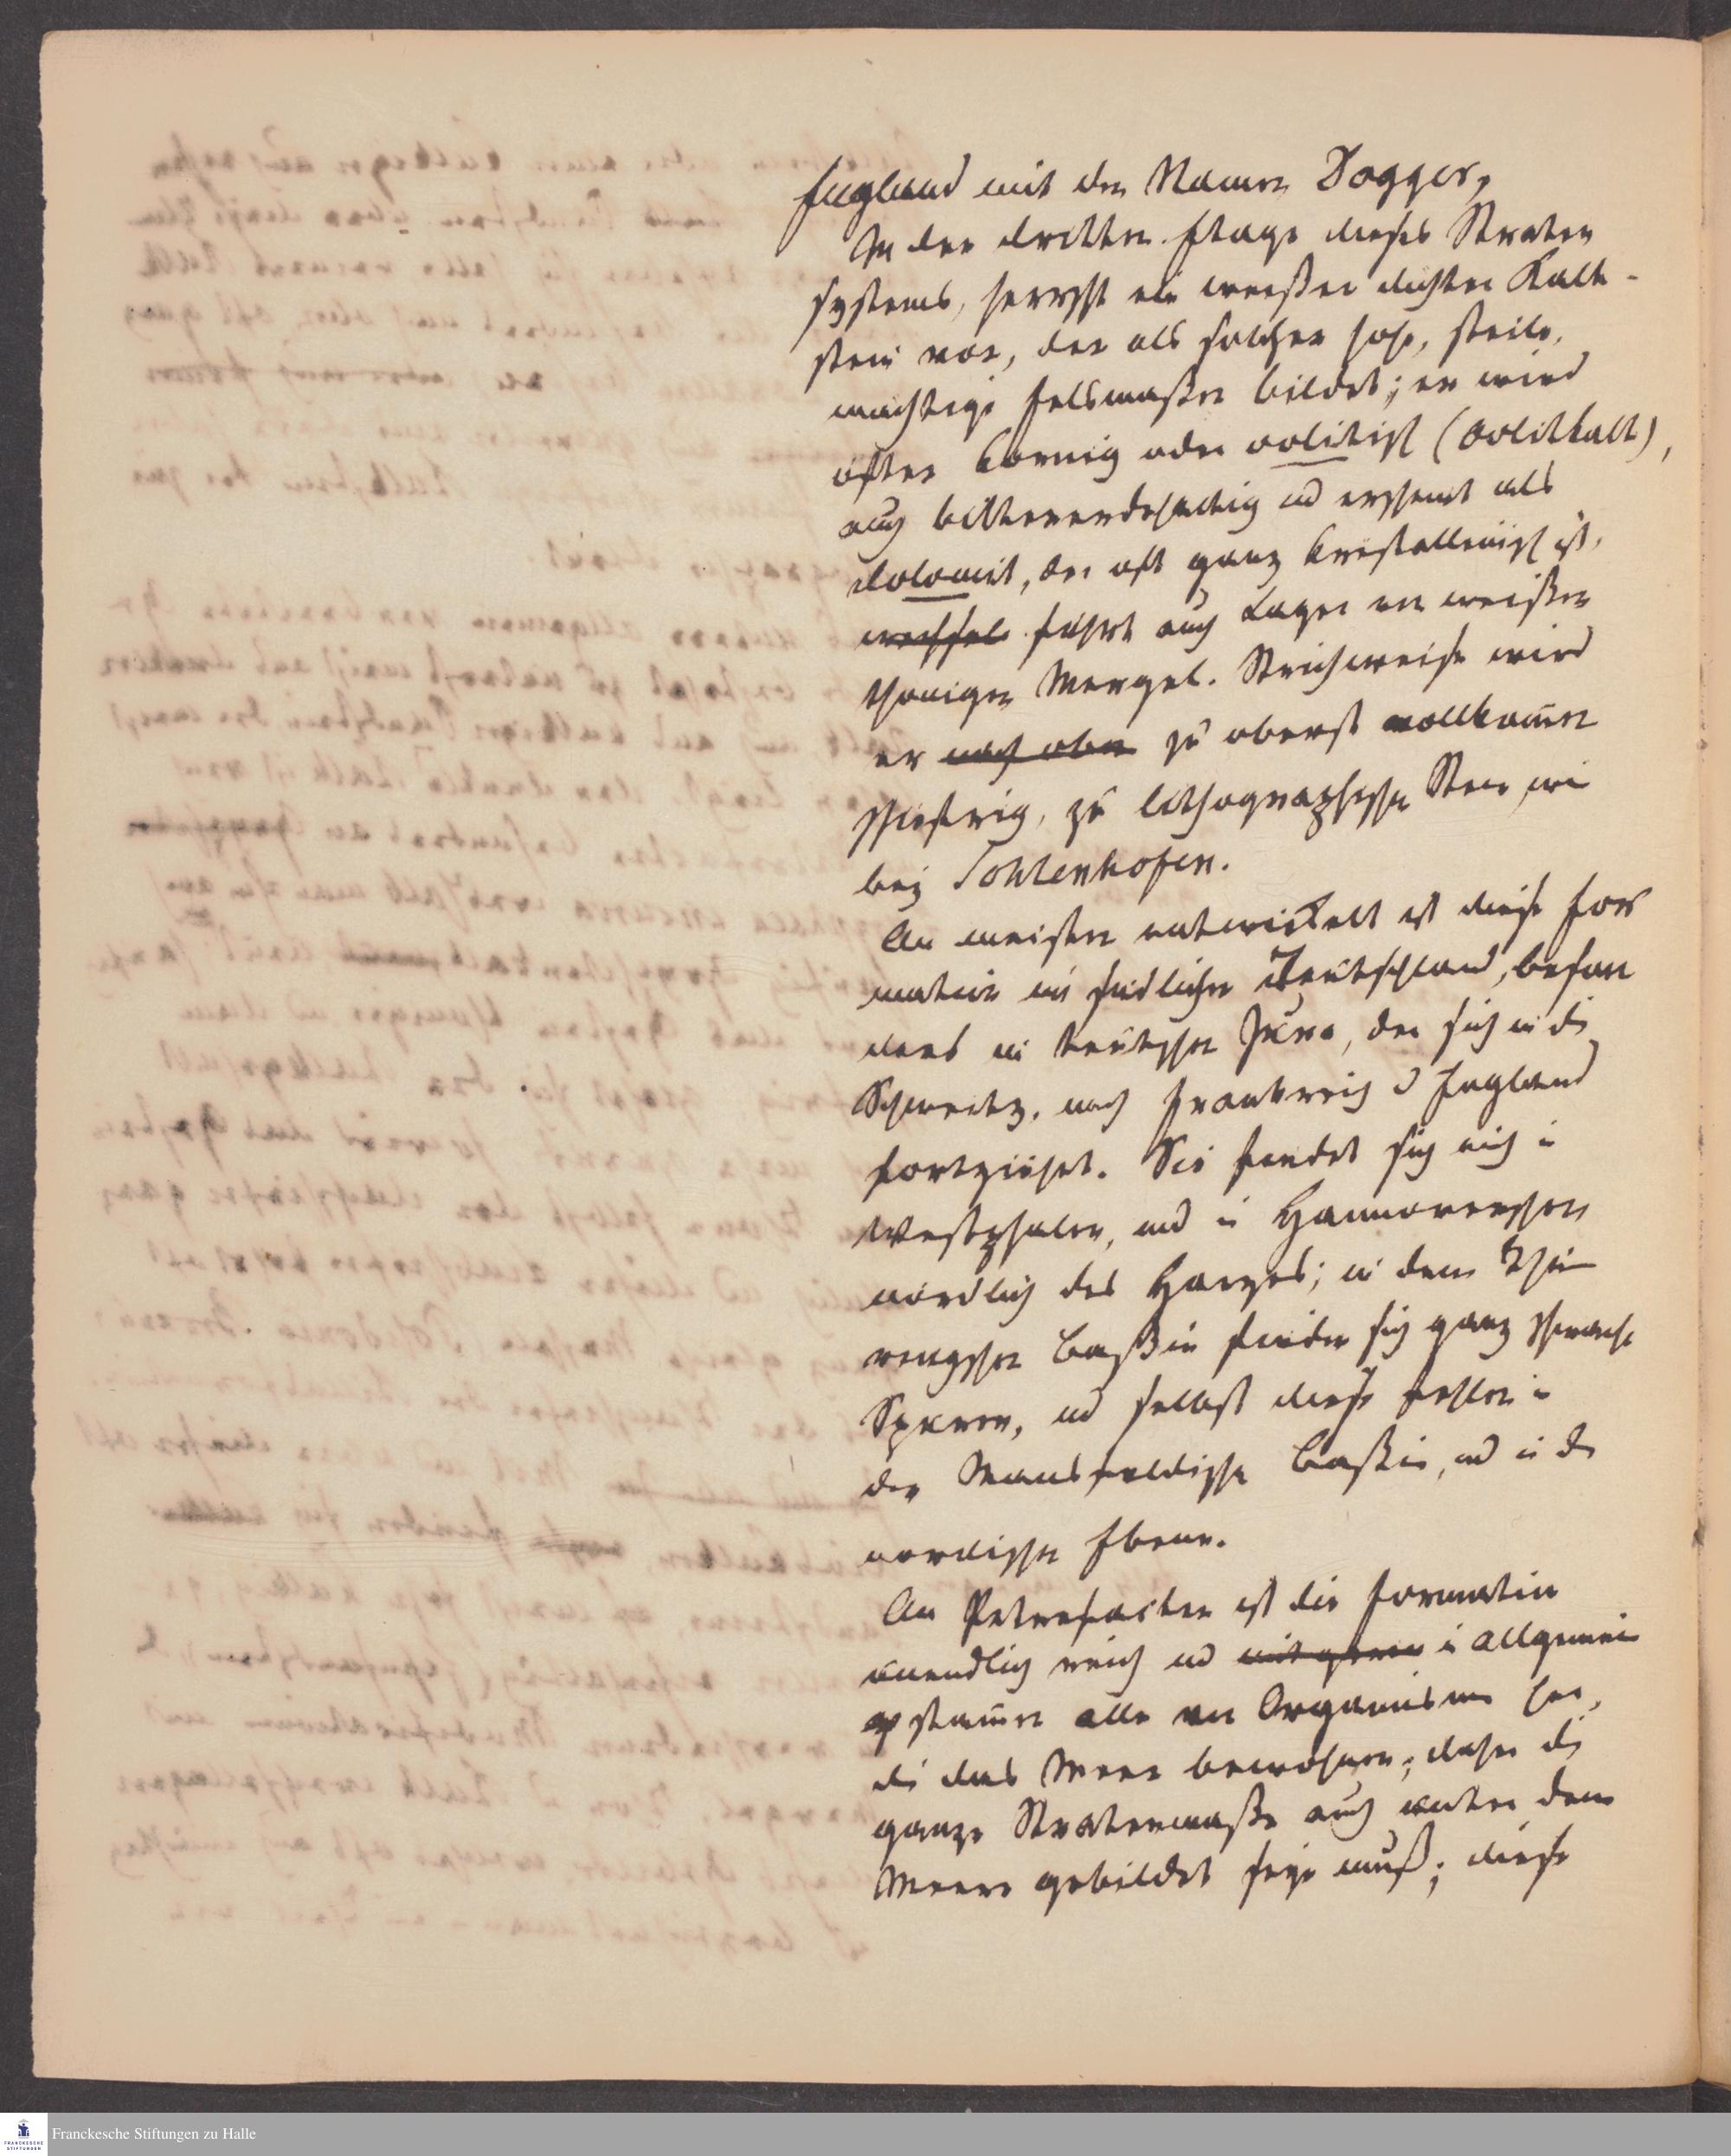 England mit den Namen Dogger,
In der dritten Etage dieses Straten
systems, herrscht ein weißer dichter Kalk-
stein vor, der als solcher hohe, steile,
mächtige Felsmaßen bildet; er wird
öfter körnig oder oolitisch (Oolitkalk),
auch bittererdehaltig und erscheint als
Dolomit, der oft ganz kristallinisch ist,
wechsel führt auch Lager von weißen
thonigen Mergel. Strichweise wird
er nach oben zu oberst vollkom̄en
schiefrig, zu lithographischen Stein wie
bey Sohlenhofen.
Am meisten entwickelt ist diese For
mation im südlichen Teutschland, beson
ders im teutschen Jura, der sich in die
Schweitz, nach Frankreich u England
fortziehet. Sie findet sich auch in
Westphalen, und in Hannoverschen
nördlich des Harzes; in dem Thü
ringschen Baßin finden sich ganz schwache
Spuren, und selbst diese fehlen in
der Mansfeldische Baßin, und in der
nordischen Ebene.
An Petrefacten ist die Formation
unendlich reich und im Allgemein
stam̄en alle von Organismen her,
die das Meer bewohnen; daher die
ganze Stratenmaße auch unter dem
Meere gebildet seyn muß; diese
Franckesche Stiftungen zu Halle
FRANCKESCHE
STIFTUNGEN